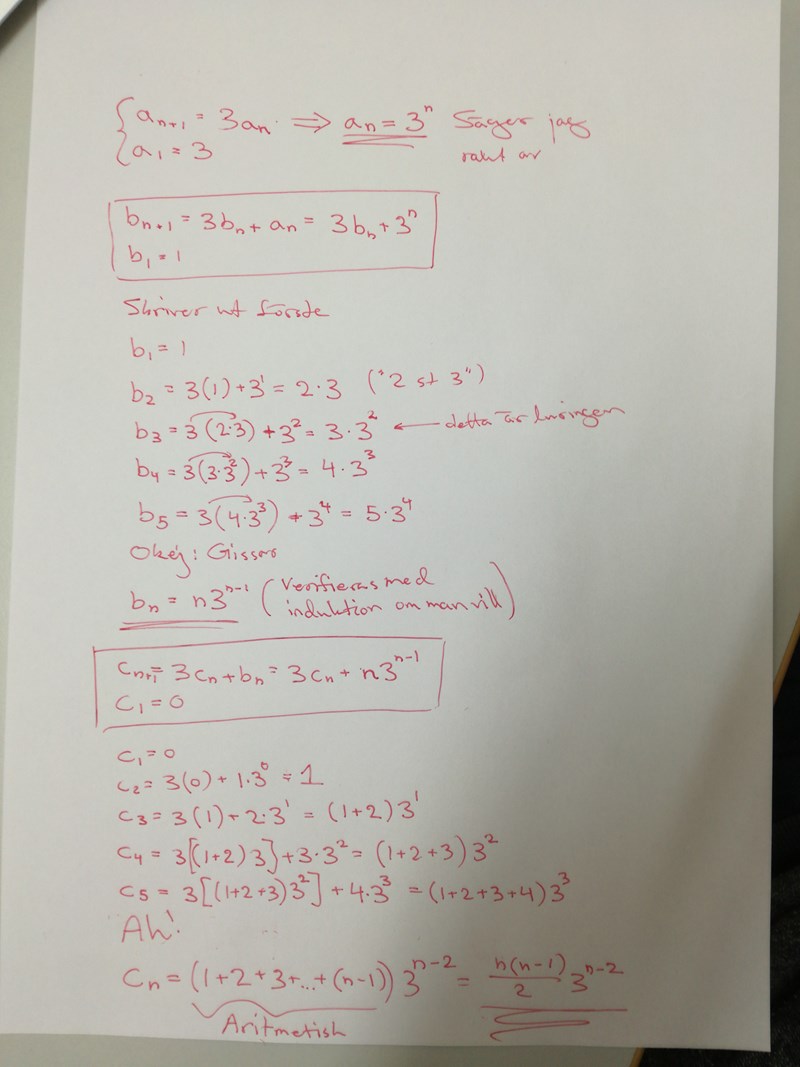 { aₙ₊₁ = 3aₙ ⟹ aₙ = 3ⁿ Säger jag
{ a₁ = 3 rakt av
bₙ₊₁ = 3bₙ + aₙ = 3bₙ + 3ⁿ
b₁ = 1
Skriver ut första
b₁ = 1
b₂ = 3(1) + 3¹ = 2·3 ("2 st 3")
b₃ = 3(2·3) + 3² = 3·3² ← detta är lösningen
b₄ = 3(3·3²) + 3³ = 4·3³
b₅ = 3(4·3³) + 3⁴ = 5·3⁴
Okej: Gissar
bₙ = n3ⁿ⁻¹ (Verifieras med
induktion om man vill)
cₙ₊₁ = 3cₙ + bₙ = 3cₙ + n3ⁿ⁻¹
c₁ = 0
c₁ = 0
c₂ = 3(0) + 1·3⁰ = 1
c₃ = 3(1) + 2·3¹ = (1+2)3¹
c₄ = 3[(1+2)3] + 3·3² = (1+2+3)3²
c₅ = 3[(1+2+3)3²] + 4·3³ = (1+2+3+4)3³
Ah!
Cₙ = (1+2+3+...+(n-1))3ⁿ⁻² = n(n-1)/2 3ⁿ⁻²
Aritmetisk